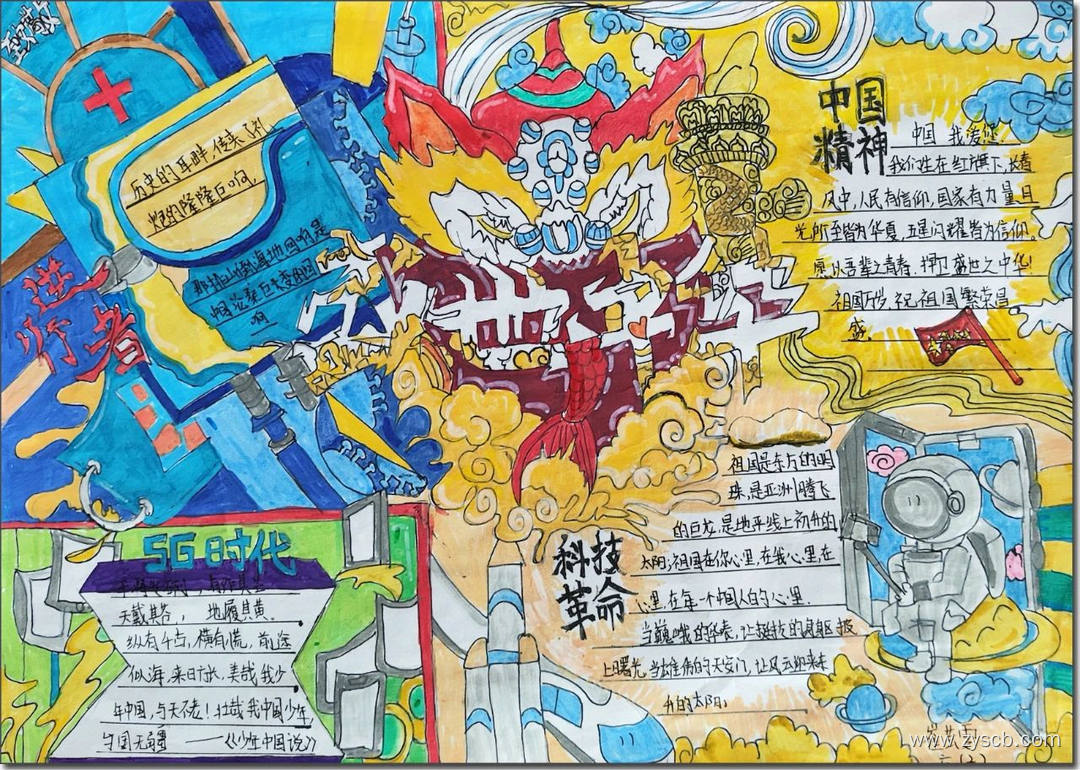 致敬
历史的耳畔,传来
隆隆巨响,
逆
行者
中国
精神
中国 我爱您
我们生在红旗下,长春
风中,人民有信仰,国家有力量目
光所至皆为华夏,五星闪耀皆为信仰。
愿以吾辈之青春 捍卫盛世之中华
祖国万岁 祝祖国繁荣昌
盛。
祖国是东方的明
珠,是亚洲腾飞
的巨龙,是地平线上初升的
太阳:祖国在你心里,在我心里,在
心里,在每一个中国人的心里.
科技
革命
当巍峨的华表,让挺拔的身躯披
上曙光,当雄伟的天安门,让风云迎来
升的太阳;
5G时代
天戴其苍, 地履其黄。
纵有千古,横有八荒,前途
似海,来日方长,美哉我少
年中国,与天不老!壮哉我中国少年
与国无疆 ——《少年中国说》
www.zyscb.com
六(2)